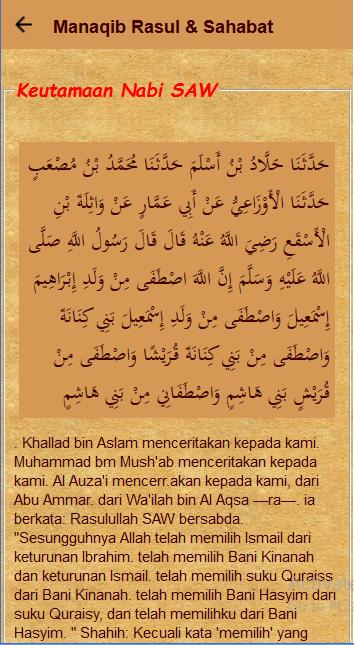 Manaqib Rasul & Sahabat
Keutamaan Nabi SAW
حَدَّثَنَا خَلَّادُ بْنُ أَسْلَمَ حَدَّثَنَا مُحَمَّدُ بْنُ مُصْعَبٍ
حَدَّثَنَا الْأَوْزَاعِيُّ عَنْ أَبِي عَمَّارٍ عَنْ وَاثِلَةَ بْنِ
الْأَسْقَعِ رَضِيَ اللَّهُ عَنْهُ قَالَ قَالَ رَسُولُ اللَّهِ صَلَّى
اللَّهُ عَلَيْهِ وَسَلَّمَ إِنَّ اللَّهَ اصْطَفَى مِنْ وَلَدِ إِبْرَاهِيمَ
إِسْمَعِيلَ وَاصْطَفَى مِنْ وَلَدِ إِسْمَعِيلَ بَنِي كِنَانَةَ
وَاصْطَفَى مِنْ بَنِي كِنَانَةَ قُرَيْشًا وَاصْطَفَى مِنْ
قُرَيْشٍ بَنِي هَاشِمٍ وَاصْطَفَانِي مِنْ بَنِي هَاشِمٍ
. Khallad bin Aslam menceritakan kepada kami.
Muhammad bm Mush'ab menceritakan kepada
kami. Al Auza'i mencerr.akan kepada kami, dari
Abu Ammar. dari Wa'ilah bin Al Aqsa —ra—. ia
berkata: Rasulullah SAW bersabda.
"Sesungguhnya Allah telah memilih Ismail dari
keturunan Ibrahim. telah memilih Bani Kinanah
dan keturunan Ismail. telah memilih suku Quraiss
dari Bani Kinanah. telah memilih Bani Hasyim dari
suku Quraisy, dan telah memilihku dari Bani
Hasyim. " Shahih: Kecuali kata 'memilih' yang